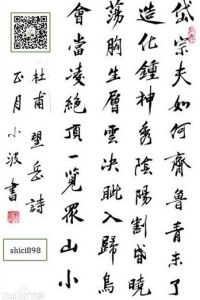 岱宗夫如何齊魯青未了
造化鍾神秀陰陽割昏曉
蕩胸生層雲決眦入歸鳥
會當凌絕頂一覽眾山小
杜甫望岳詩
正月小波書
shici898